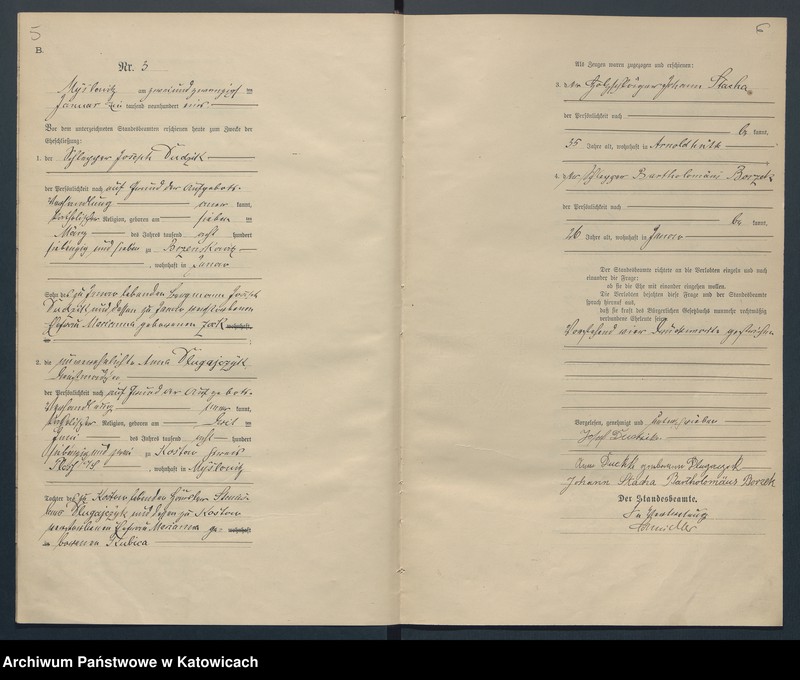 5
B.
Nr. 3
Myslowitz am zwei und zwanzigsten
Januar tausend neunhundert eins
Vor dem unterzeichneten Standesbeamten erschienen heute zum Zwecke der
Eheschließung:
1. der Schlepper Joseph Dudzik
der Persönlichkeit nach auf Grund der Aufgebots-
verhandlung anerkannt,
katholischer Religion, geboren am sieben ten
März des Jahres tausend acht hundert
siebenzig und sieben zu
, wohnhaft in Janow
Sohn des zu Janow lebenden Bergmann Joseph
Dudzik und dessen zu Janow verstorbenen
Ehefrau Marianna geborenen wohnhaft
2. die unverehelichte Anna Dlugajczyk
Dienstmädchen
der Persönlichkeit nach auf Grund der Aufgebots-
verhandlung anerkannt,
katholischer Religion, geboren am
Juni des Jahres tausend acht hundert
siebenzig und zwei zu Kostow Kreis
Pleß, wohnhaft in Myslowitz
Tochter des zu Kostow lebenden Häusler
Dlugajczyk und dessen zu Kostow
verstorbenen Ehefrau Marianna ge- wohnhaft
in borenen Kubica
6
Als Zeugen waren zugezogen und erschienen:
3. der Johann Stacha
der Persönlichkeit nach
be kannt,
35 Jahre alt, wohnhaft in
4. der Schlepper Bartholomäus Borzek
der Persönlichkeit nach
be kannt,
26 Jahre alt, wohnhaft in Janow
Der Standesbeamte richtete an die Verlobten einzeln und nach
einander die Frage:
ob sie die Ehe mit einander eingehen wollen.
Die Verlobten bejahten diese Frage und der Standesbeamte
sprach hierauf aus,
daß sie kraft des Bürgerlichen Gesetzbuchs nunmehr rechtmäßig
verbundene Eheleute seien.
Vorstehend vier Druckworte gestrichen
Vorgelesen, genehmigt und unterschrieben
Josef
Anna geborene Dlugajczyk
Johann Stacha Bartholomäus Borzek
Der Standesbeamte.
In Vertretung
Archiwum Państwowe w Katowicach